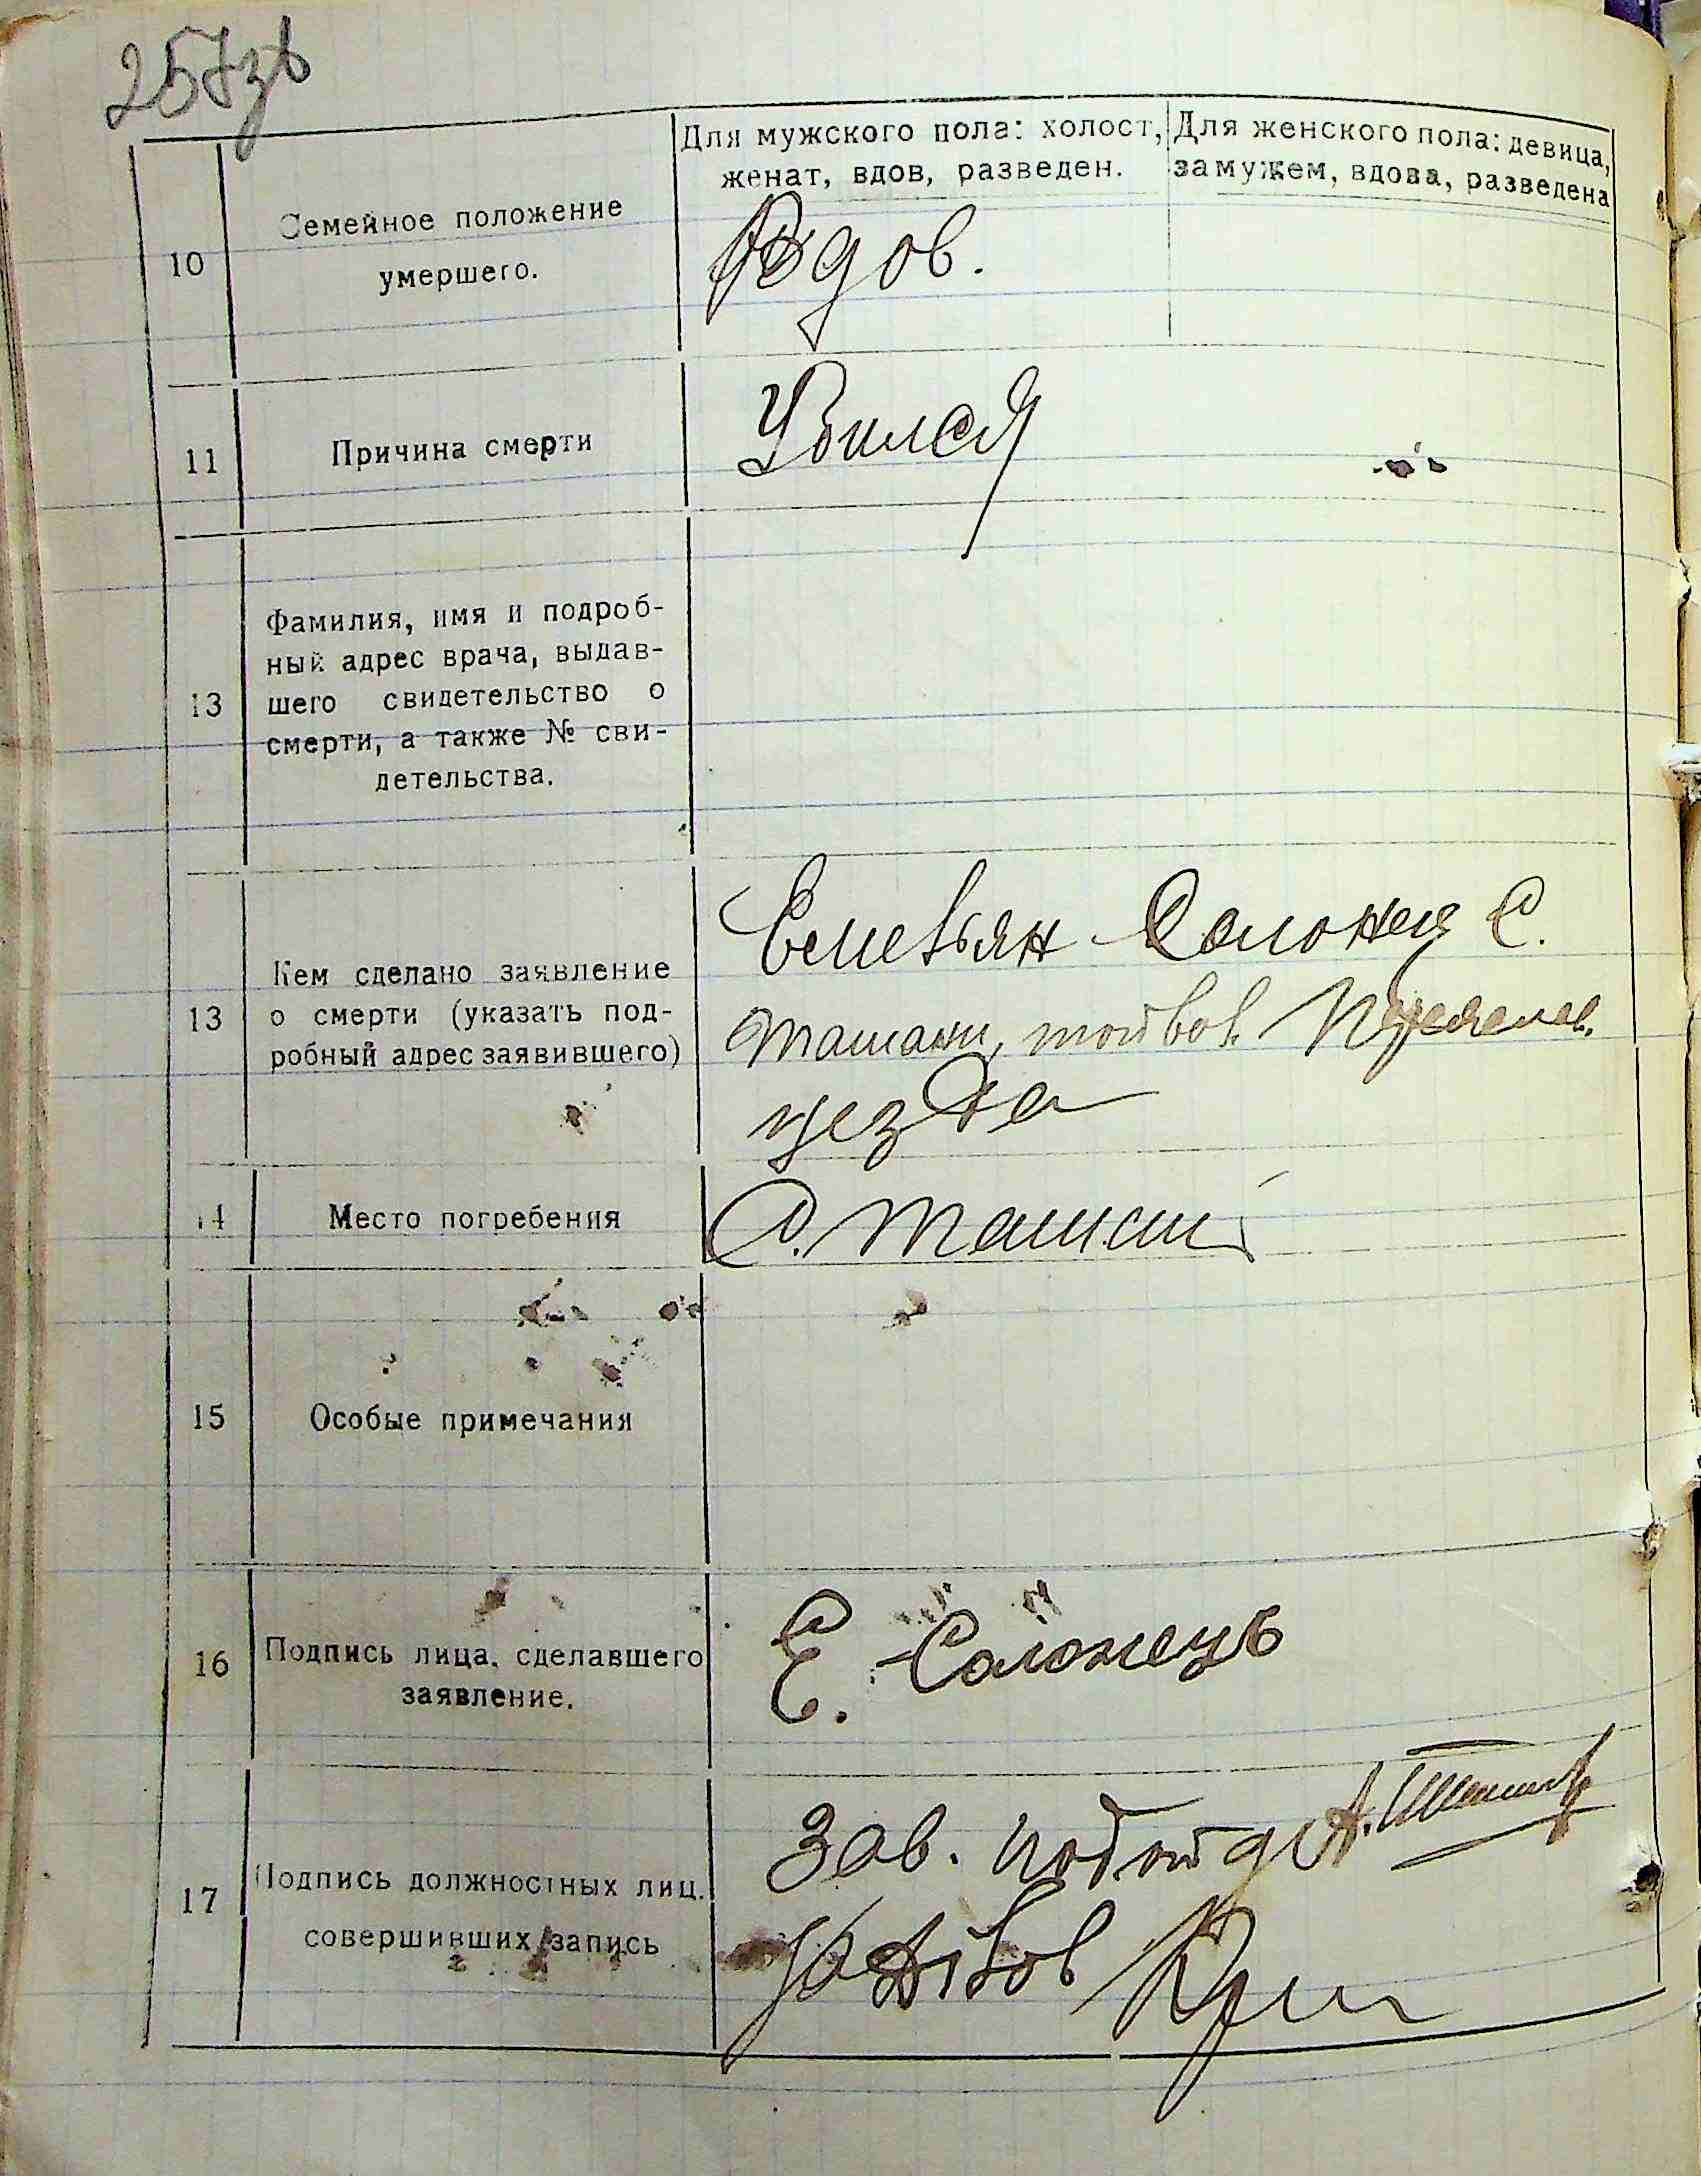 257зв
Для мужского пола: холост, женат, вдов, разведен.
Для женского пола: девица, замужем, вдова, разведена
10
Семейное положение
умершего.
Вдов.
11
Причина смерти
Убился
13
Фамилия, имя и подроб-
ный адрес врача, выдав-
шего свидетельство о
смерти, а также № сви-
детельства.
13
Кем сделано заявление
о смерти (указать под-
робный адрес заявившего)
Емельян Солонец С.
Ташани, той вол.
уезда
14
Место погребения
С. Ташань
15
Особые примечания
16
Подпись лица, сделавшего
заявление.
Е. Солонець
17
Подпись должностных лиц,
совершивших запись
Зав. подотд А.